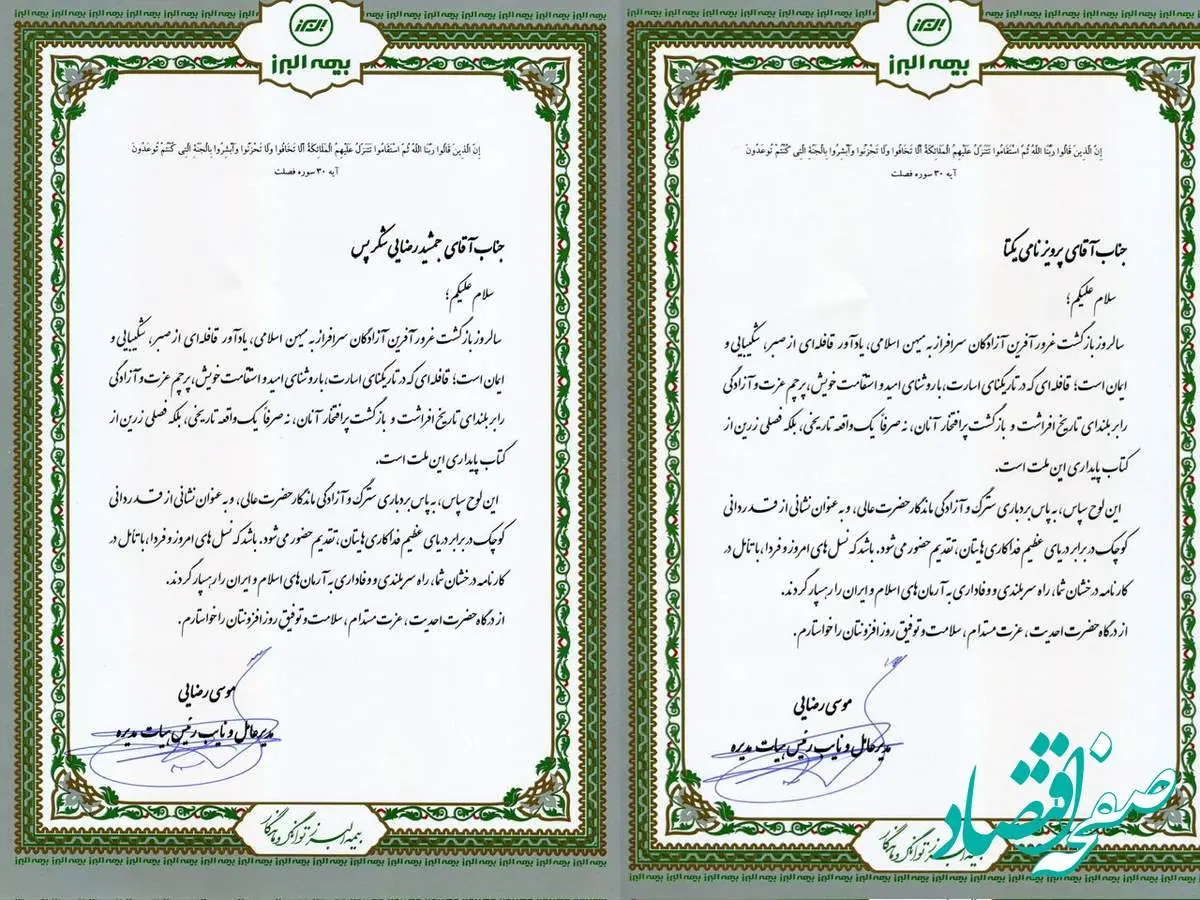 بیمه البرز
إِنَّ الَّذِينَ قَالُوا رَبُّنَا اللَّهُ ثُمَّ اسْتَقَامُوا تَتَنَزَّلُ عَلَيْهِمُ الْمَلَائِكَةُ أَلَّا تَخَافُوا وَلَا تَحْزَنُوا وَأَبْشِرُوا بِالْجَنَّةِ الَّتِي كُنْتُمْ تُوعَدُونَ
آیه ۳۰ سوره فصلت
جناب آقای پرویز نامی یکتا
سلام علیکم؛
سالروز بازگشت غرور آفرین آزادگان سرافراز به میهن اسلامی، یادآور قافله‌ای از صبر، شکیبایی و
ایمان است؛ قافله‌ای که در تاریکنای اسارت، با روشنای امید و استقامت خویش، پرچم عزت و آزادگی
را بر بلندای تاریخ افراشت و بازگشت پرافتخار آنان، نه صرفاً یک واقعه تاریخی، بلکه فصلی زرین از
کتاب پایداری این ملت است.
این لوح سپاس، به پاس بردباری سترگ و آزادگی ماندگار حضرت عالی، و به عنوان نشانی از قدردانی
کوچک در برابر دریای عظیم فداکاری هایتان، تقدیم حضور می‌شود. باشد که نسل های امروز و فردا، با تأمل در
کارنامه درخشان شما، راه سربلندی و وفاداری به آرمان‌های اسلام و ایران را رهسپار گردند.
از درگاه حضرت احدیت، عزت مستدام، سلامت و توفیق روز افزونتان را خواستارم.
موسی رضایی
مدیرعامل و نایب رئیس هیات مدیره
صفحه اقتصاد
بیمه البرز
إِنَّ الَّذِينَ قَالُوا رَبُّنَا اللَّهُ ثُمَّ اسْتَقَامُوا تَتَنَزَّلُ عَلَيْهِمُ الْمَلَائِكَةُ أَلَّا تَخَافُوا وَلَا تَحْزَنُوا وَأَبْشِرُوا بِالْجَنَّةِ الَّتِي كُنْتُمْ تُوعَدُونَ
آیه ۳۰ سوره فصلت
جناب آقای جمشید رضایی شکر پس
سلام علیکم؛
سالروز بازگشت غرور آفرین آزادگان سرافراز به میهن اسلامی، یادآور قافله‌ای از صبر، شکیبایی و
ایمان است؛ قافله‌ای که در تاریکنای اسارت، با روشنای امید و استقامت خویش، پرچم عزت و آزادگی
را بر بلندای تاریخ افراشت و بازگشت پرافتخار آنان، نه صرفاً یک واقعه تاریخی، بلکه فصلی زرین از
کتاب پایداری این ملت است.
این لوح سپاس، به پاس بردباری سترگ و آزادگی ماندگار حضرت عالی، و به عنوان نشانی از قدردانی
کوچک در برابر دریای عظیم فداکاری هایتان، تقدیم حضور می‌شود. باشد که نسل های امروز و فردا، با تأمل در
کارنامه درخشان شما، راه سربلندی و وفاداری به آرمان‌های اسلام و ایران را رهسپار گردند.
از درگاه حضرت احدیت، عزت مستدام، سلامت و توفیق روز افزونتان را خواستارم.
موسی رضایی
مدیرعامل و نایب رئیس هیات مدیره
بیمه البرز توانگر و ماندگار